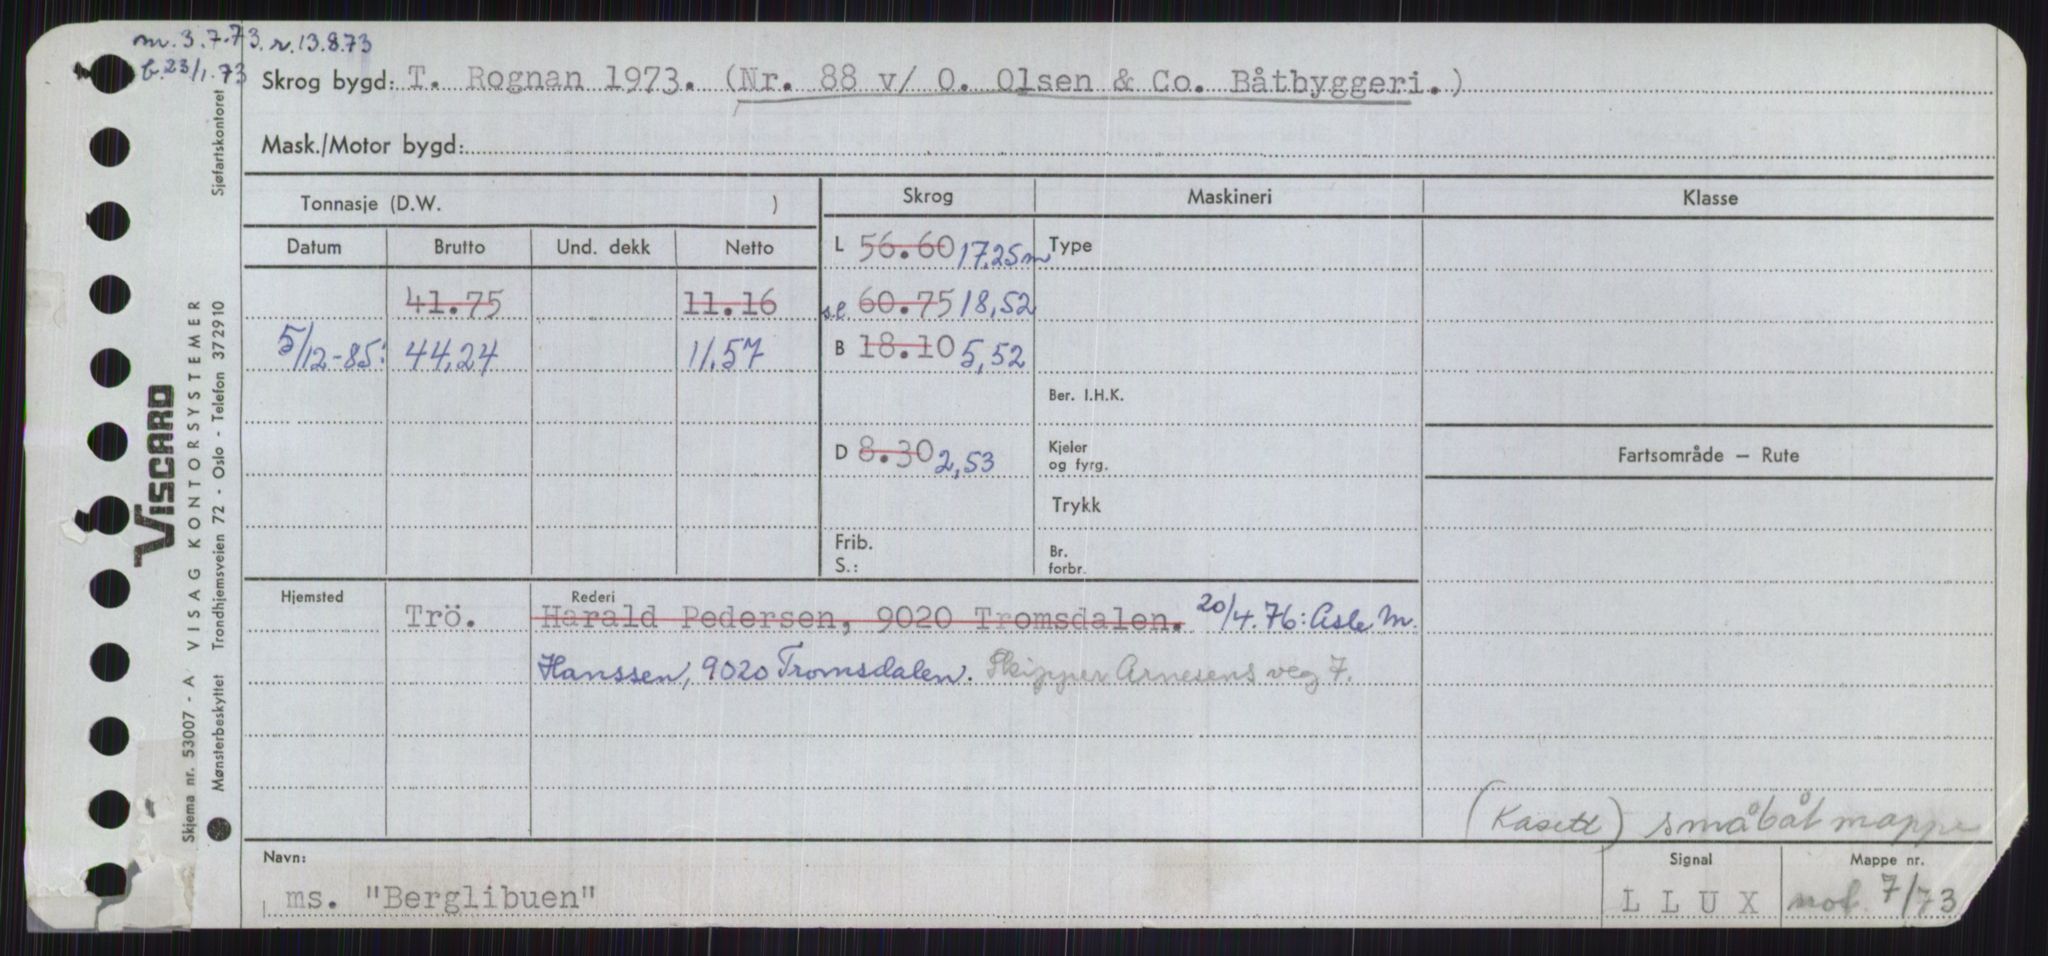 m. 3.7.73. r. 13.8.73
b. 23/1.73
Skrog bygd: T. Rognan 1973. (Nr. 88 v/ O. Olsen & Co. Båtbyggeri.)
Mask./Motor bygd:
Tonnasje (D.W. )
Skrog
Maskineri
Klasse
Datum Brutto Und. dekk Netto
L 56.60 17,25m
Type
41.75 11.16
s.l. 60.75 18,52
5/12-85: 44,24 11.57
B 18.10 5,52
Ber. I.H.K.
D 8.30 2,53
Kjeler
og fyrg.
Fartsområde – Rute
Trykk
Frib.
S.:
Br.
forbr.
Hjemsted
Rederi
Trö. Harald Pedersen, 9020 Tromsdalen. 20/4.76: Asle M.
Hanssen, 9020 Tromsdalen. Skipper Arnesens veg 7.
(Kasett) småbåt mappe
Navn:
Signal
Mappe nr.
ms. "Berglibuen"
LLUX
7/73
VISCARD
Skjema nr. 53007 - A VISAG KONTORSYSTEMER
Mønsterbeskyttet Trondhjemsveien 72 - Oslo - Telefon 372910 Sjøfartskontoret